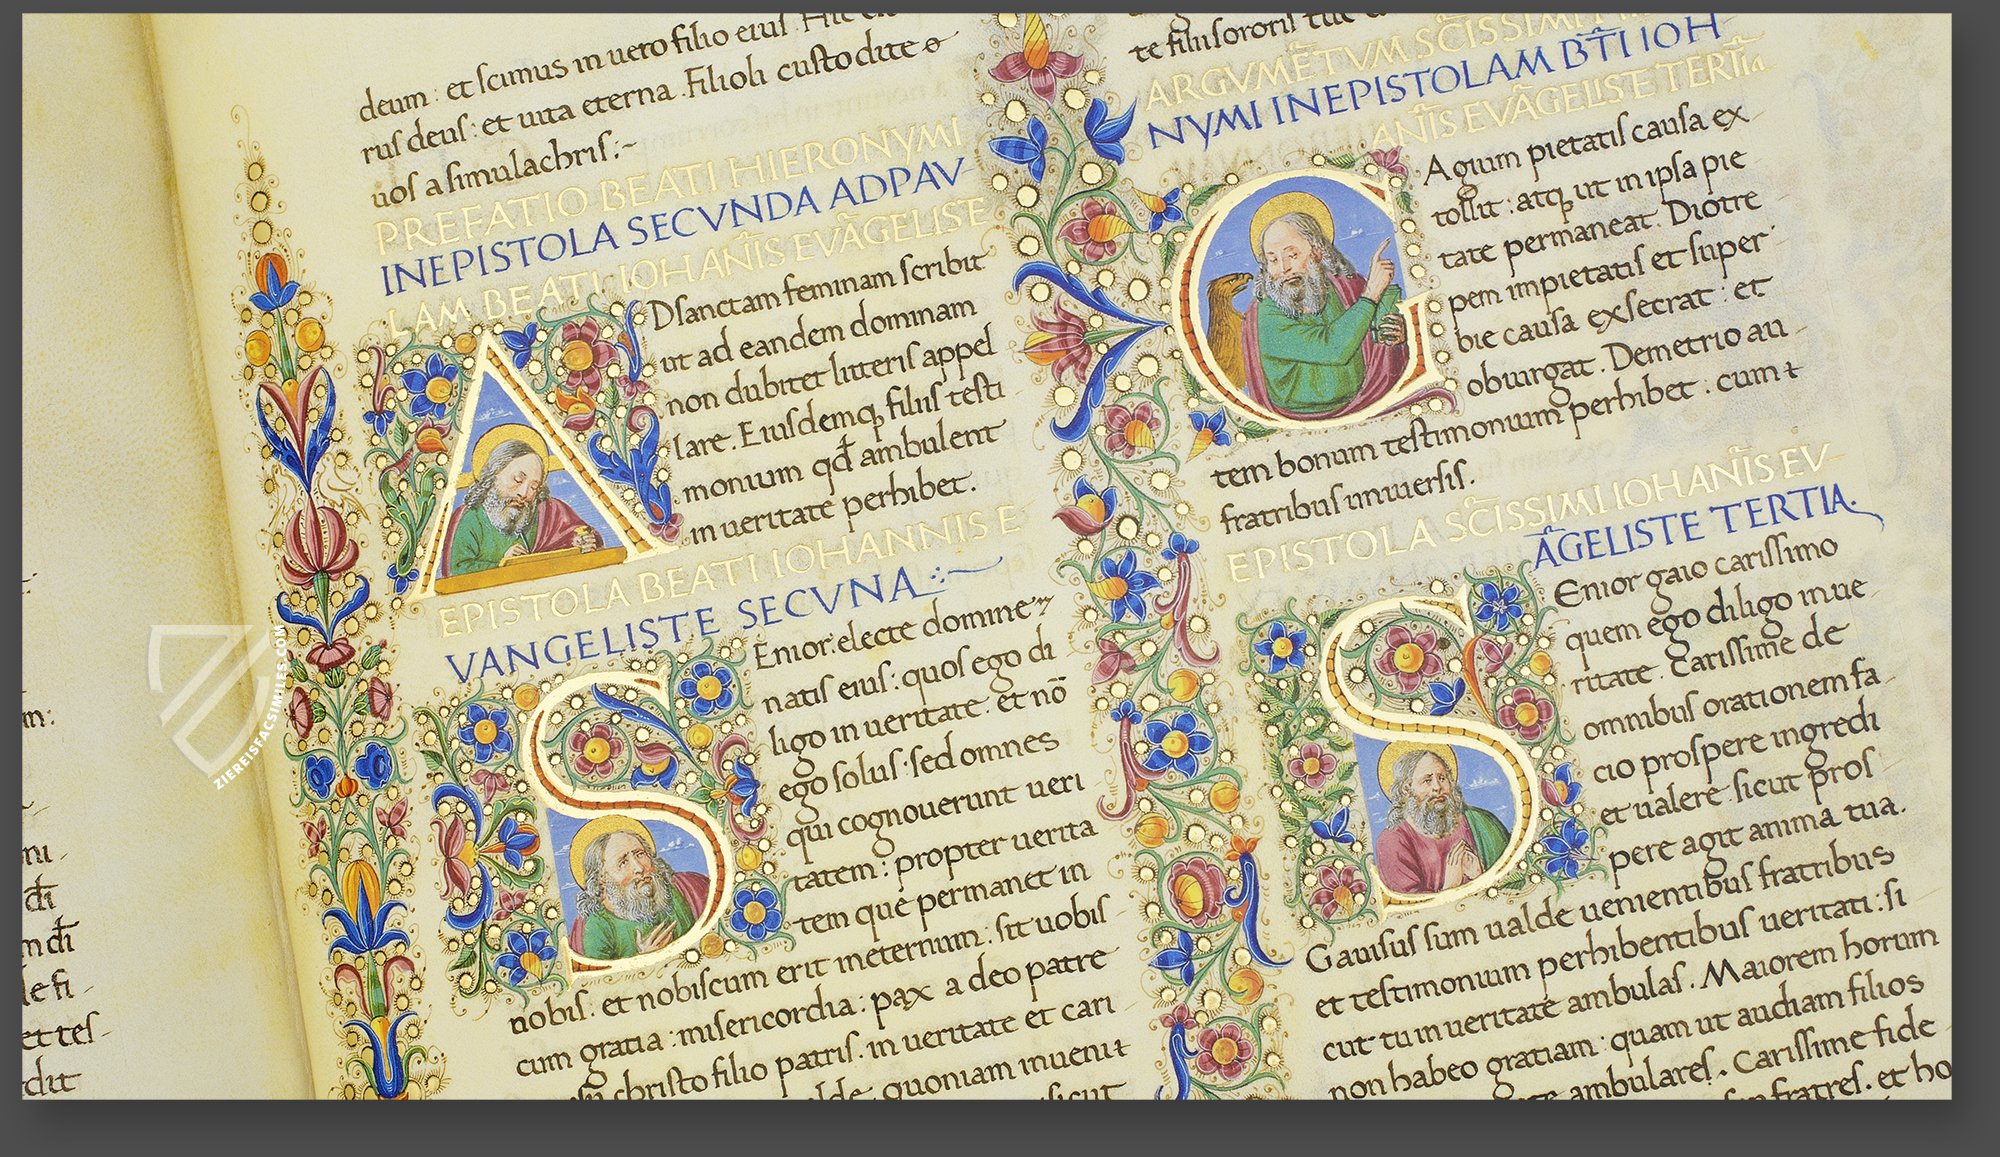 deum : et scimus in uero filio eius
rus deus : et uita eterna . Filioli custodite
uos a simulachris :~
PREFATIO BEATI HIERONYMI
INEPISTOLA SECVNDA ADPAV
LAM BEATI IOHANĪS EVĀGELISE
ADsanctam feminam scribit
ut ad eandem dominam
non dubitet litteris appel
lare . Eiusdemq; filiis testi
monium qd̄ ambulent
in ueritate perhibet .
EPISTOLA BEATI IOHANNIS E
VANGELISTE SECVNA
SEnior electe domine
natis eius : quos ego di
ligo in ueritate . et nō
ego solus : sed omnes
qui cognouerunt ueri
tatem : propter uerita
tem que permanet in
nobis . et nobiscum erit ineternum : sit uobis
cum gratia : misericordia : pax a deo patre
christo filio patris . in ueritate et cari
quoniam inueni
te filii sororis tue
ARGVMĒTVM SC̄ISSIMI
NYMI INEPISTOLAM BT̄I IOH
ANĪS EVĀGELISE TERTIa
GAgium pietatis causa ex
tollit : atq; ut in ipsa pie
tate permaneat . Diotre
pem impietatis et super
bie causa exsecrat : et
obiurgat . Demetrio au
tem bonum testimonium perhibet . cum
fratribus uniuersis .
EPISTOLA SC̄ISSIMI IOHANĪS EV
ĀGELISTE TERTIA .
SEnior gaio carissimo
quem ego diligo in ue
ritate . Carissime de
omnibus orationem fa
cio prospere ingredi
et ualere sicut pros
pere agit anima tua .
Gauisus sum ualde uenientibus fratribus
et testimonium perhibentibus ueritati : si
cut tu in ueritate ambulas . Maiorem horum
non habeo gratiam : quam ut audiam filios
ambulares . Carissime fide
fratres . et ho
m :
ni
di
le fi
et tes
dit
ZIEREISFACSIMILES.COM